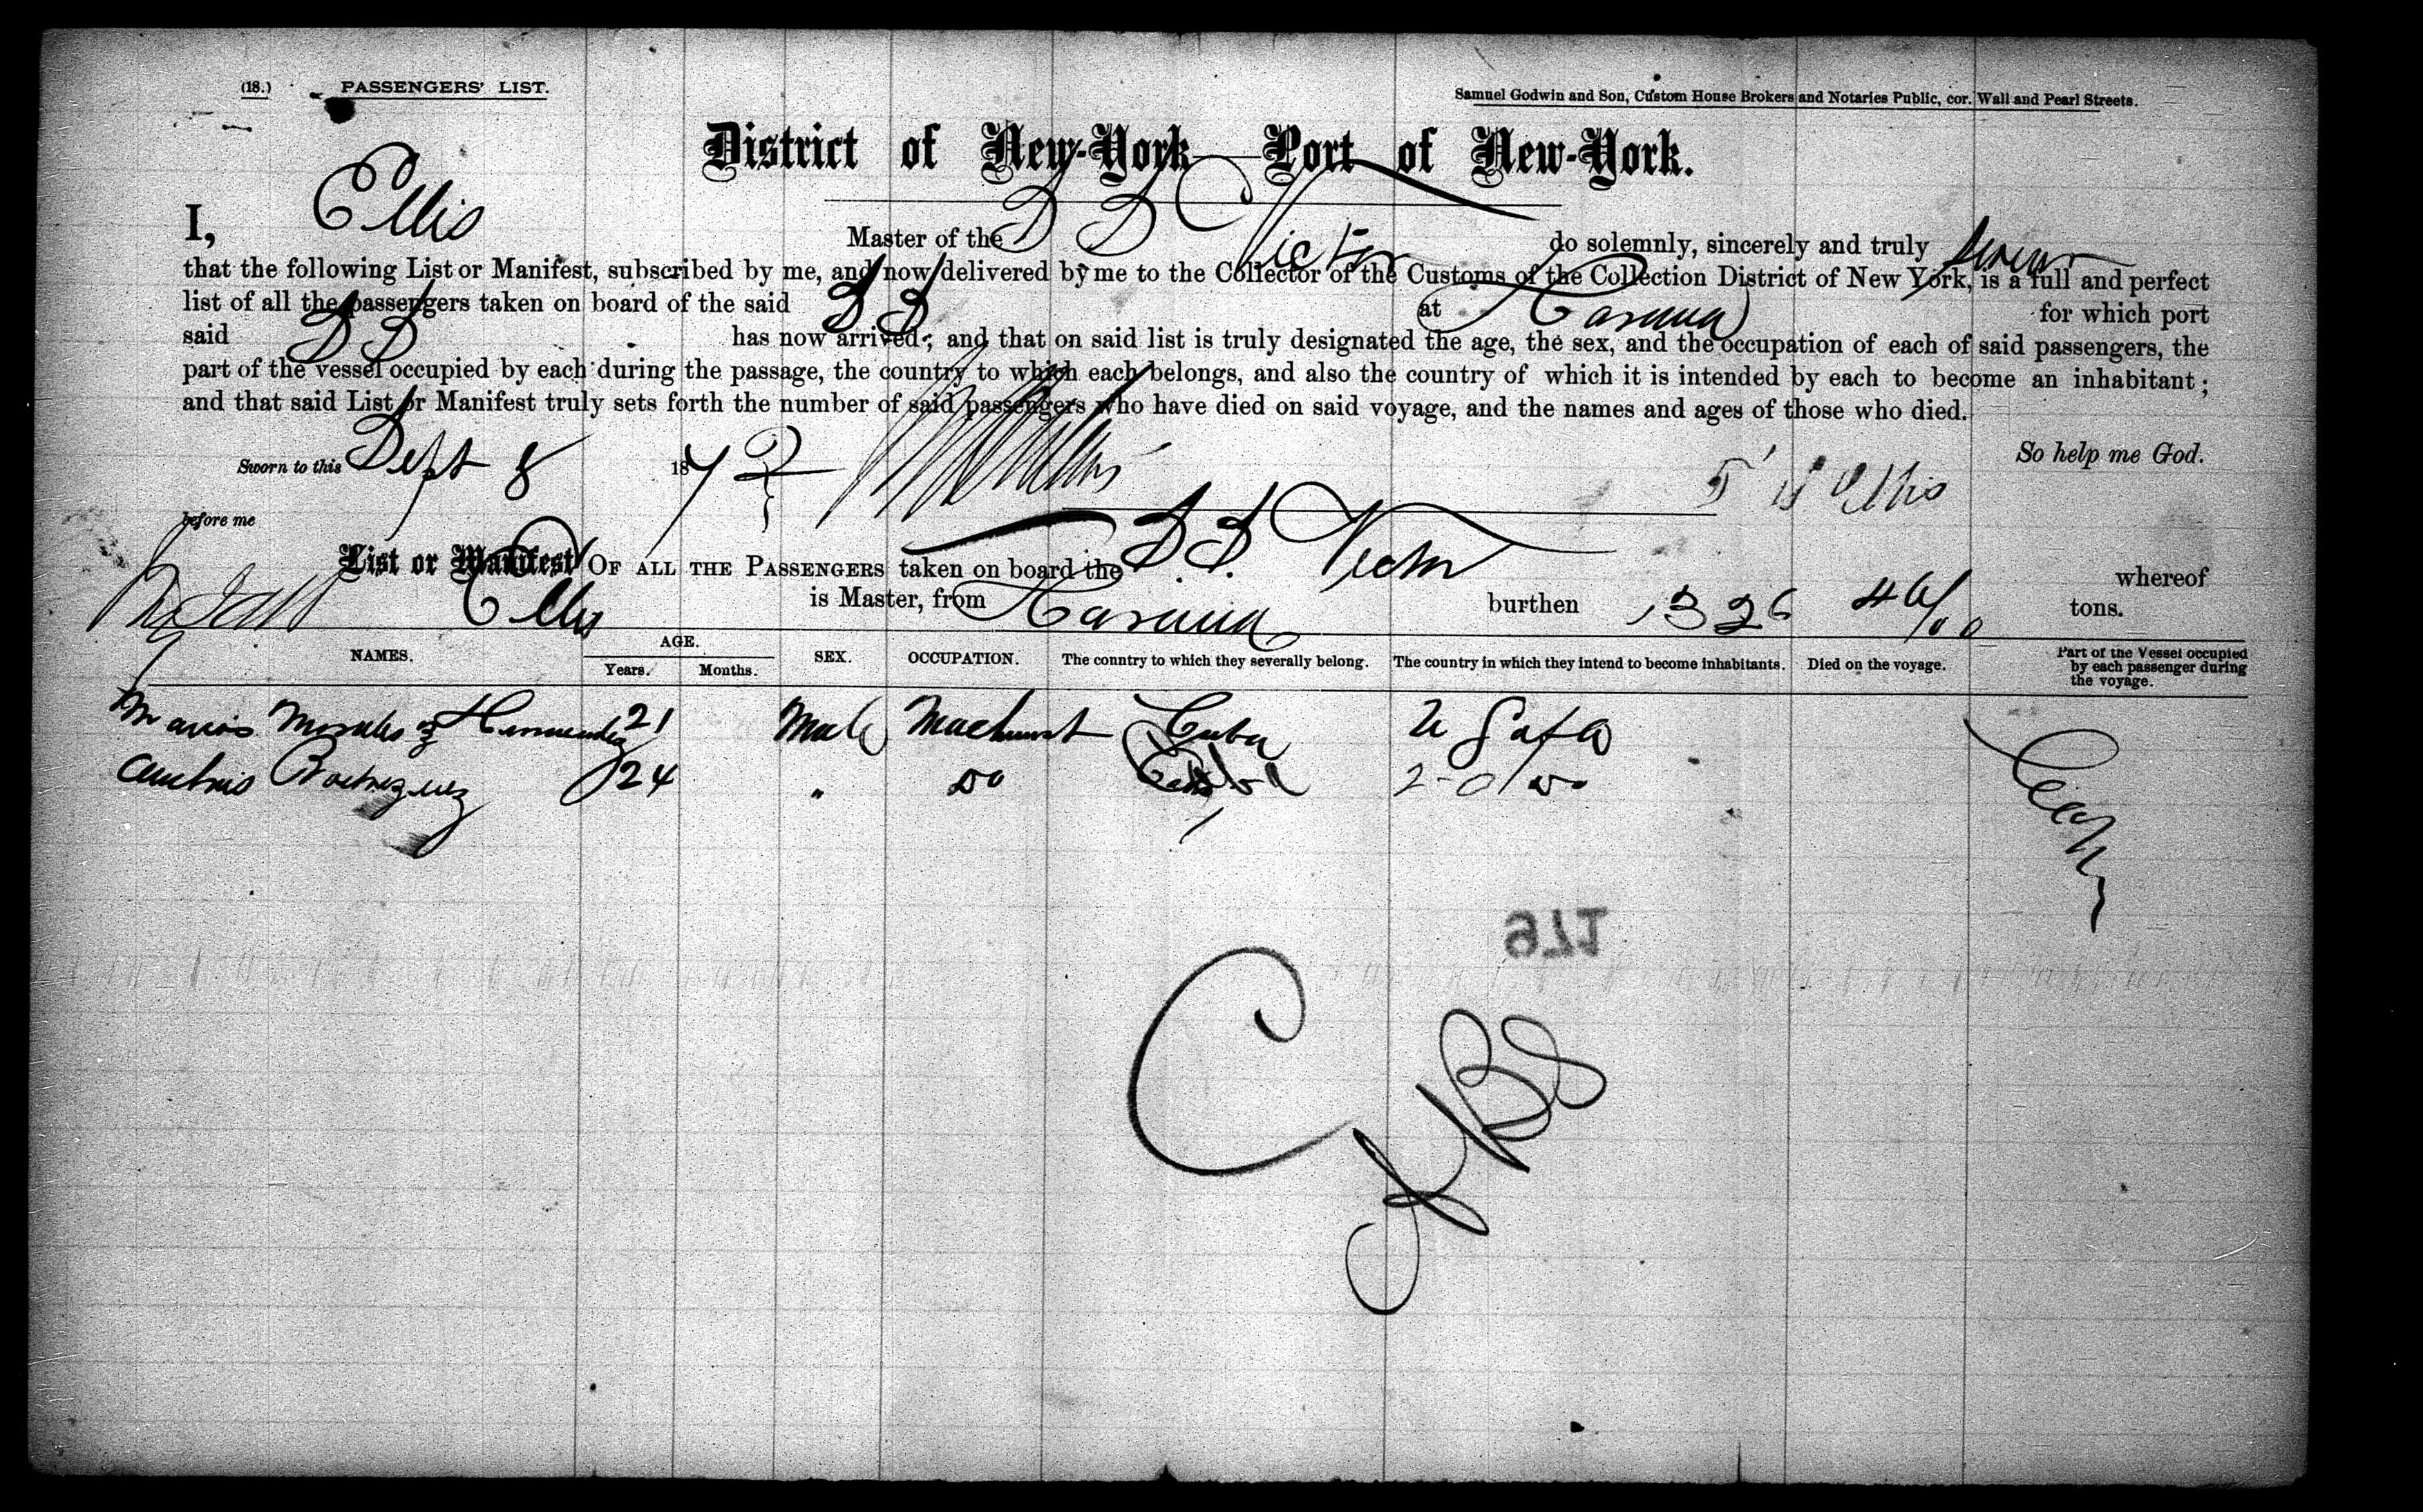 (18.) PASSENGERS' LIST.
Samuel Godwin and Son, Custom House Brokers and Notaries Public, cor. Wall and Pearl Streets.
District of New-York Port of New-York.
I, Ellis Master of the S S Victor do solemnly, sincerely and truly swear
that the following List or Manifest, subscribed by me, and now delivered by me to the Collector of the Customs of the Collection District of New York, is a full and perfect
list of all the passengers taken on board of the said S S at Havana for which port
said S S has now arrived; and that on said list is truly designated the age, the sex, and the occupation of each of said passengers, the
part of the vessel occupied by each during the passage, the country to which each belongs, and also the country of which it is intended by each to become an inhabitant;
and that said List or Manifest truly sets forth the number of said passengers who have died on said voyage, and the names and ages of those who died.
Sworn to this Sept 8 187 Ellis So help me God.
before me
List or Manifest OF ALL THE PASSENGERS taken on board the S.S. Victor whereof
Ellis is Master, from Havana burthen 1326 tons.
NAMES. AGE. Years. Months. SEX. OCCUPATION. The conntry to which they severally belong. The country in which they intend to become inhabitants. Died on the voyage. Part of the Vessel occupied by each passenger during the voyage.
Morales Hernandez 21 Male Cuba
24 " do do
176
C